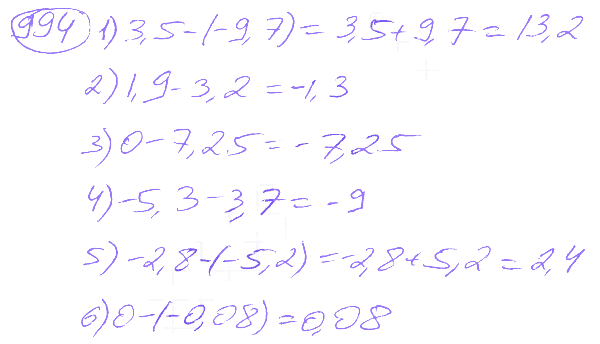 994 1) 3,5-(-9,7)=3,5+9,7=13,2
2) 1,9-3,2=-1,3
3) 0-7,25=-7,25
4) -5,3-3,7=-9
5) -2,8-(-5,2)=-2,8+5,2=2,4
6) 0-(-0,08)=0,08